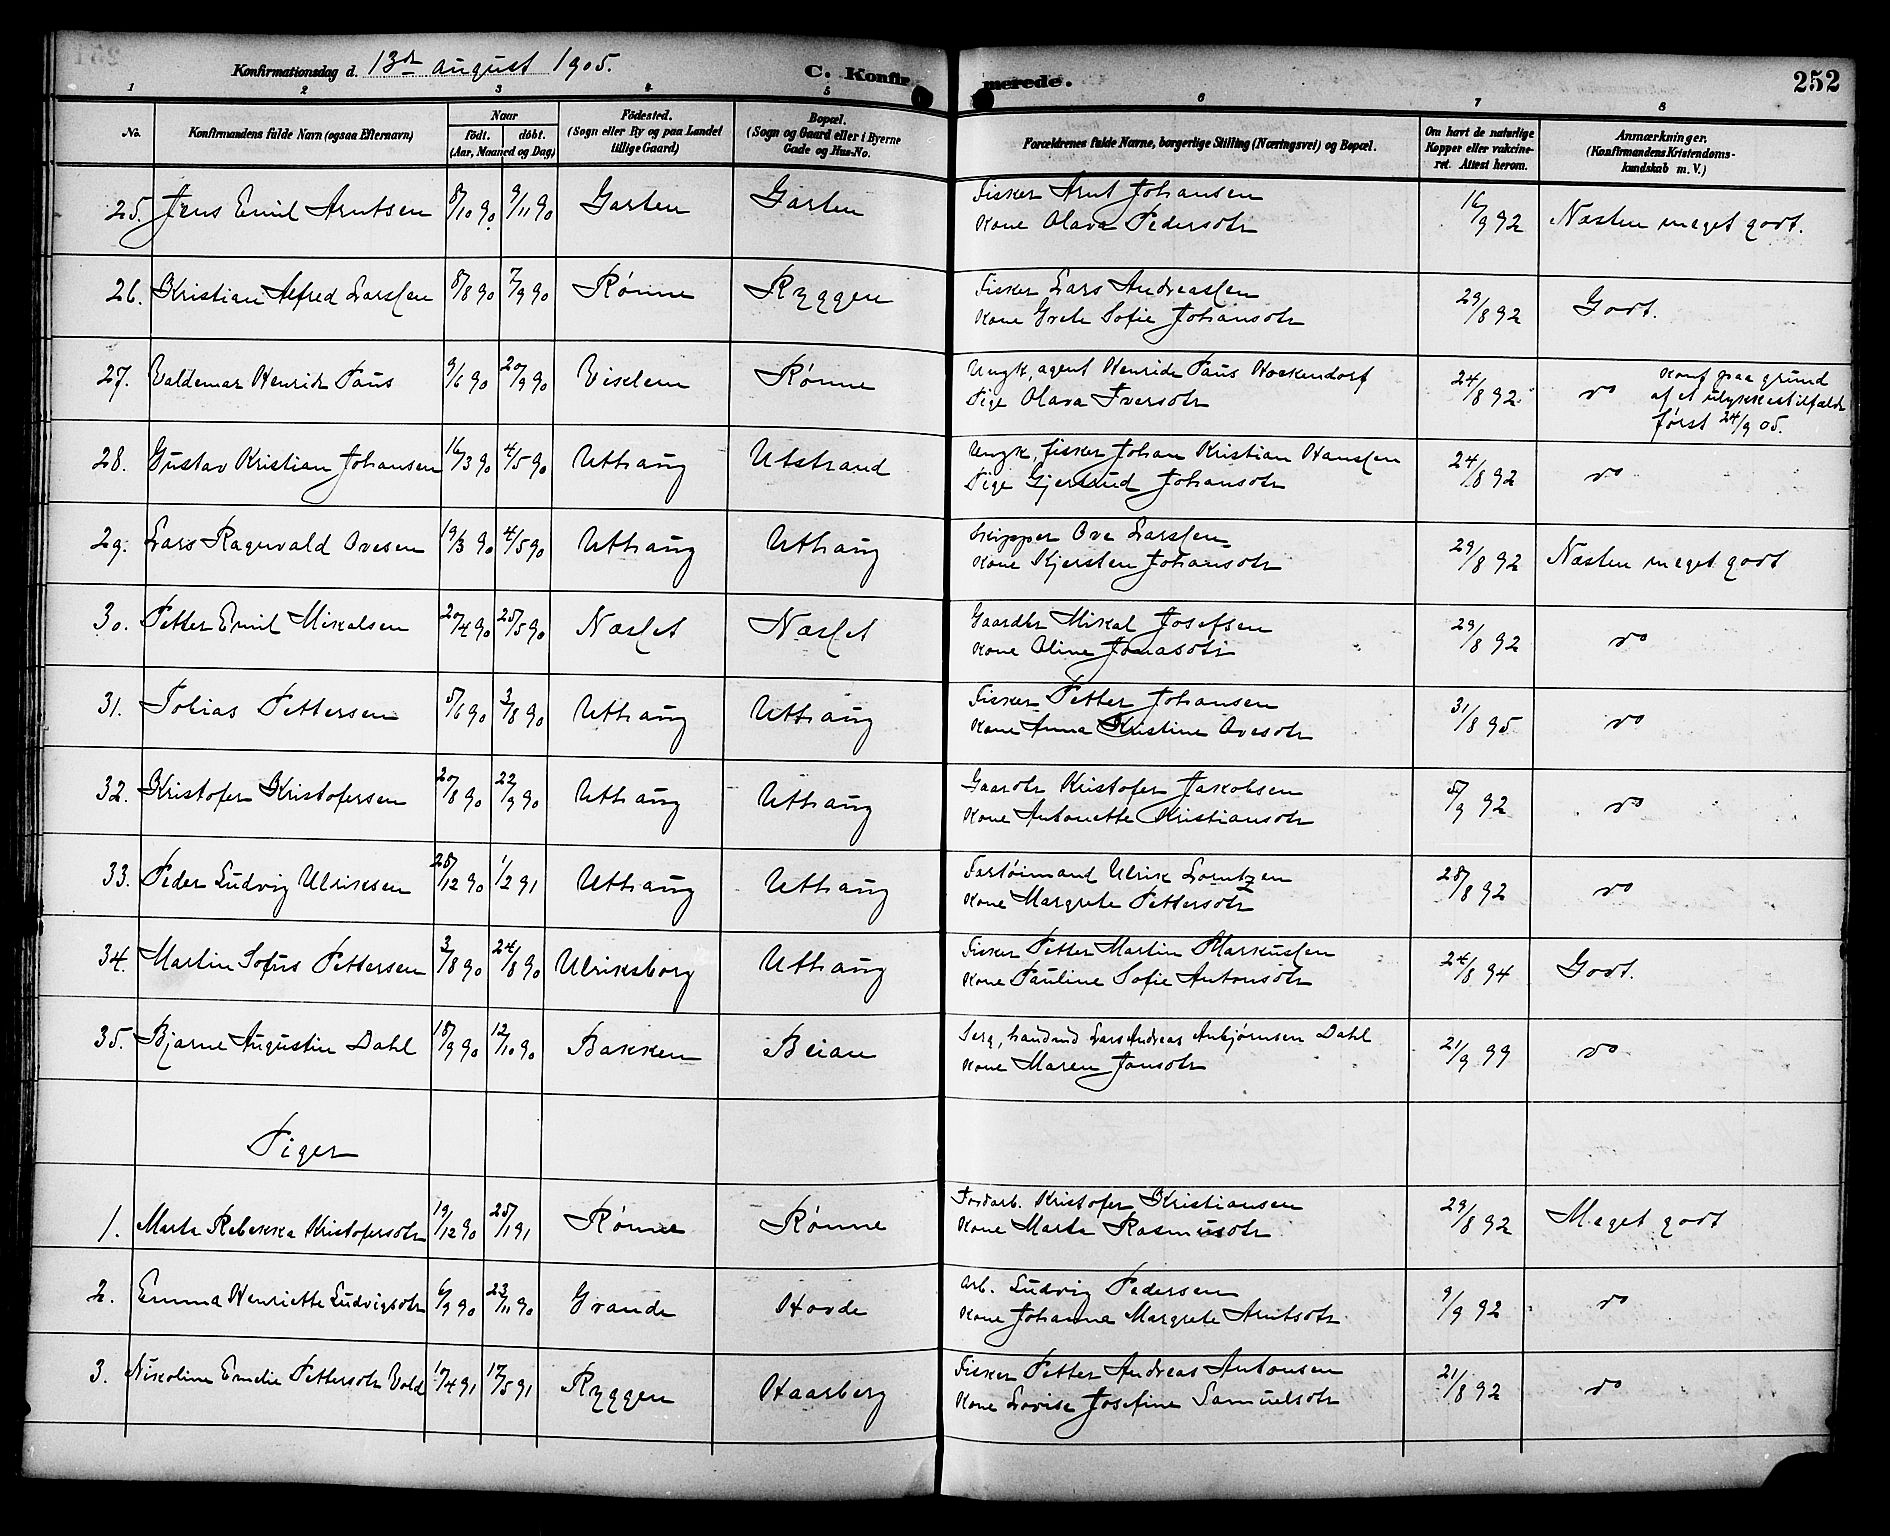 Konfirmationsdag d. 13de august 1905.
C. Konfirmerede.
252
1 2 3 4 5 6 7 8
No. Konfirmandens fulde Navn (ogsaa Efternavn) Naar født. døbt. (Aar, Maaned og Dag) Födested. (Sogn eller By og paa Landet tillige Gaard) Bopæl. (Sogn og Gaard eller i Byerne Gade og Hus-No. Forældrenes fulde Navne, borgerlige Stilling (Næringsvei) og Bopæl. Om havt de naturlige Kopper eller vakcineret. Attest herom. Anmærkninger. (Konfirmandens Kristendomskundskab m. V.)
25. Jens Emil Arntsen 8/10 90 9/11 90 Garten Garten Fisker Arnt Johansen 16/9 92 Næsten meget godt.
Kone Olava Pedersdtr
26. Kristian Alfred Larssen 8/8 90 7/9 90 Rønne Ryggen Fisker Lars Andreassen 29/8 92 Godt.
Kone Grete Sofie Johansdtr
27. Valdemar Henrik Paus 9/6 90 20/9 90 Viklem Rønne Ungk, agent Henrick Paus Wockendorf 24/8 92 do konf paa grund
Pige Olava Iversdtr af et ulykkestilfælde
først 24/9 05.
28. Gustav Kristian Johansen 16/3 90 4/5 90 Uthaug Utstrand Ungk, fisker Johan Kristian Hanssen 24/8 92 do
Pige Gjertrud Johansdtr
29. Lars Ragnvald Ovesen 19/3 90 4/5 90 Uthaug Uthaug Skipper Ove Larssen 29/8 92 Næsten meget godt
Kone Kjersten Johansdtr
30. Petter Emil Mikalsen 20/4 90 25/5 90 Næslet Næslet Gaardbr Mikal Josefsen 29/8 92 do
Kone Oline Jonasdtr
31. Tobias Pettersen 5/6 90 3/8 90 Uthaug Uthaug Fisker Petter Johansen 31/8 95 do
Kone Anna Kristine Ovesdtr
32. Kristofer Kristofersen 20/8 90 22/9 90 Uthaug Uthaug Gaardbr Kristofer Jakobsen 5/9 92 do
Kone Antonette Kristiansdtr
33. Peder Ludvig Ulriksen 28/12 90 1/2 91 Uthaug Uthaug Fartøimand Ulrik Lorntzen 28/8 92 do
Kone Margrete Pettersdtr
34. Martin Sofus Pettersen 3/8 90 24/8 90 Ulriksborg Uthaug Fisker Petter Martin Markussen 24/8 94 Godt.
Kone Pauline Sofie Antonsdtr
35. Bjarne Augustin Dahl 18/9 90 12/10 90 Bakken Beian Lars Andreas Anbjørnsen Dahl 21/9 99 do
Kone Maren Jonsdtr
Piger
1. Marta Rebekka Kristofersdtr 19/12 90 25/1 91 Rønne Rønne Jordarb. Kristofer Kristiansen 29/8 92 Meget godt
Kone Marta Rasmusdtr
2. Emma Henriette Ludvigsdtr 6/9 90 23/11 90 Grande Hovde Arb. Ludvig Pedersen 9/9 92 do
Kone Johanna Margrete Arntsdtr
3. Nikoline Emelie Pettersdtr Vold 17/4 91 17/5 91 Ryggen Haarberg Fisker Petter Andreas Antonsen 21/8 92 do
Kone Lovise Josefine Samuelsdtr